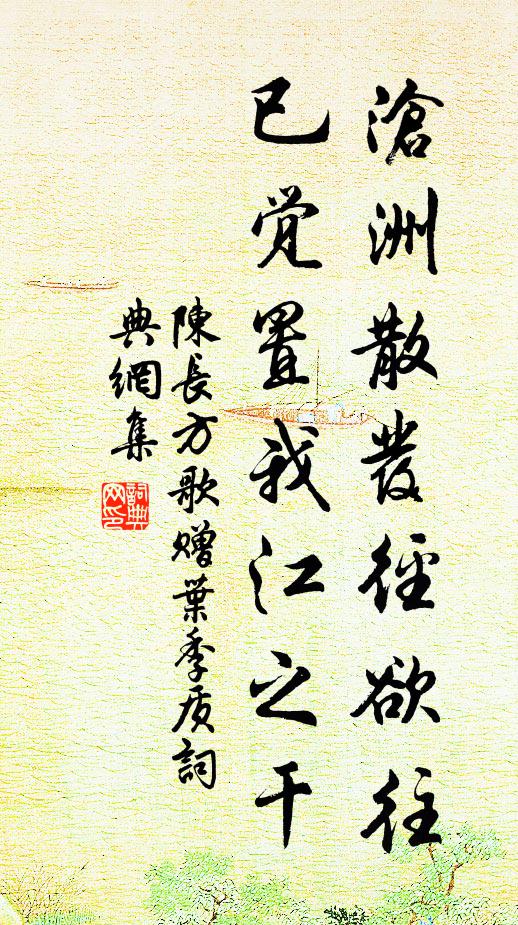 滄洲散發徑欲往
已觉置我江之干
陳長方歌赠葉季质詞
典網集
詞典
网印